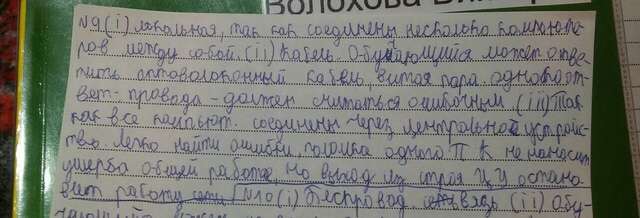 Волохова
N9 (i) локальная, так как соединены несколько компюте-
ров между собой. (ii) Кабель. Обучающийся может отве-
тить оптоволоконный кабель, витая пара однако от-
вет - провода - должен считаться ошибочным (iii) Так
как все компьют. соединены через центральное устройс-
тво. Легко найти ошибки, поломка одного ПК не наносит
ущерба общей работе, но выход из строя ЦУ остано-
вит работу сети N10 (i) Беспровод связь (ii) Обу-